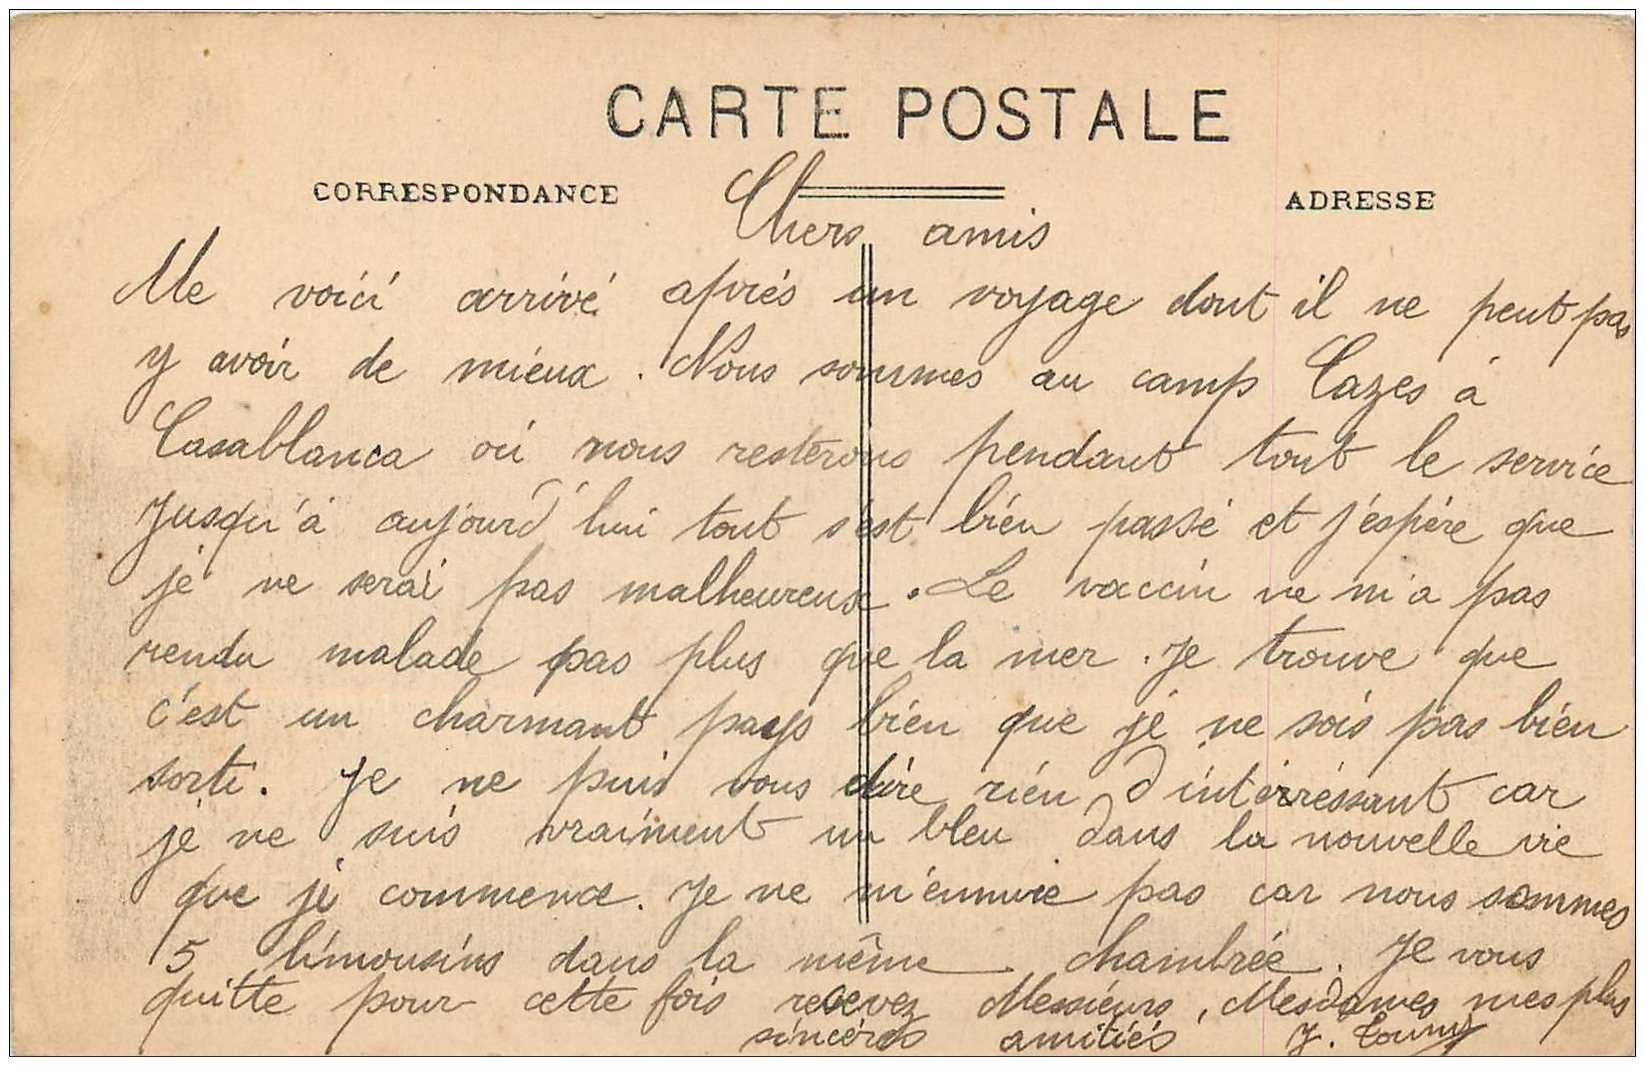 CARTE POSTALE
CORRESPONDANCE
ADRESSE
Chers amis
Me voici arrivé après un voyage dont il ne peut pas
y avoir de mieux. Nous sommes au camp Cazes à
Casablanca où nous resterons pendant tout le service
Jusqu'à aujourd'hui tout s'est bien passé et j'espère que
je ne serai pas malheureux. Le vaccin ne m'a pas
rendu malade pas plus que la mer. Je trouve que
c'est un charmant pays bien que je ne sois pas bien
sorti. Je ne puis vous dire rien d'intérréssant car
je ne suis vraiment un bleu dans la nouvelle vie
que je commence. Je ne m'ennuie pas car nous sommes
5 limousins dans la même chambrée. Je vous
quitte pour cette fois recevez Messieurs, Mesdames mes plus
sincères amitiés J.